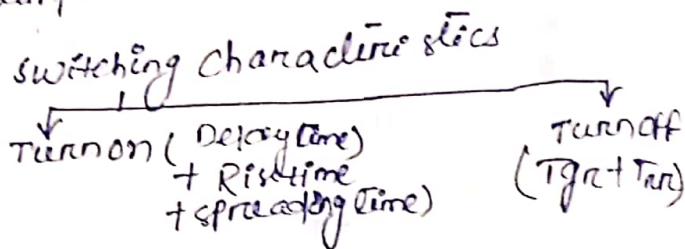 switching characteristics
Turn on ( Delay time)
+ Risetime
+ spreading time)
Turn off
(Tgr + Trr)